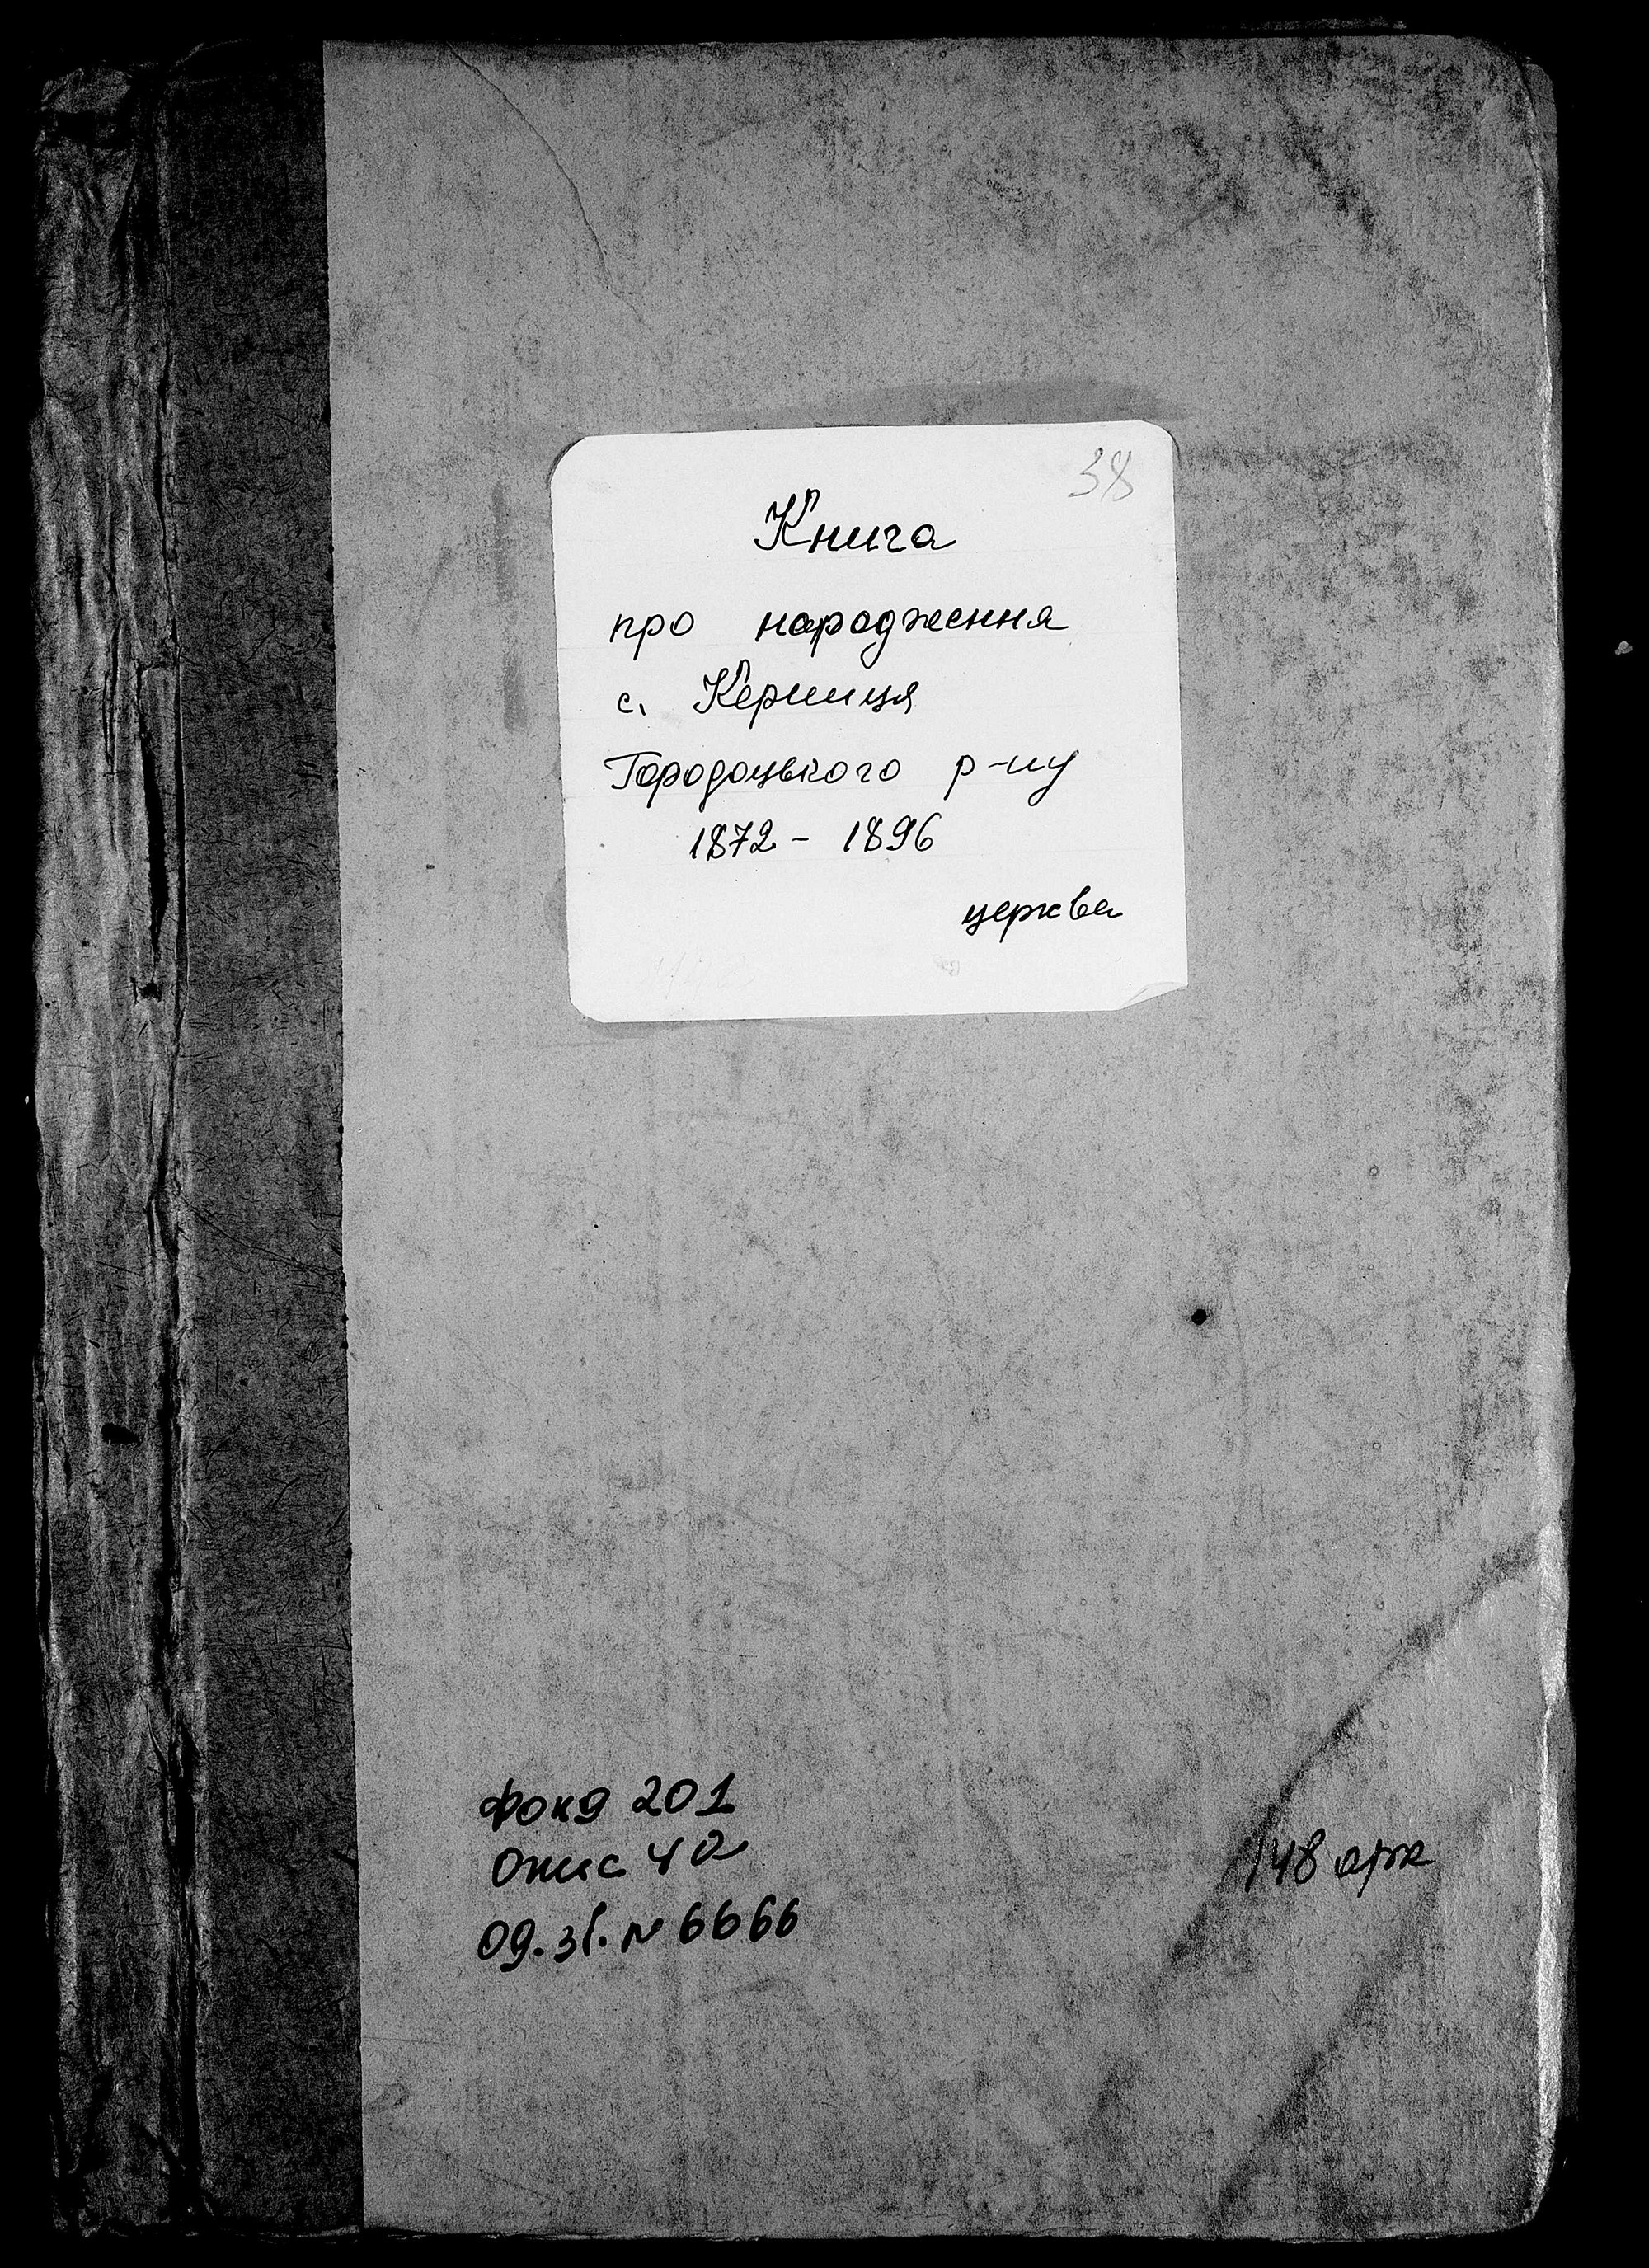 38
Книга
про народження
с. Керниця
Городоцького р-ну
1872 - 1896
церква
фонд 201
Опис 4а
Од. зб. № 6666
148 арк